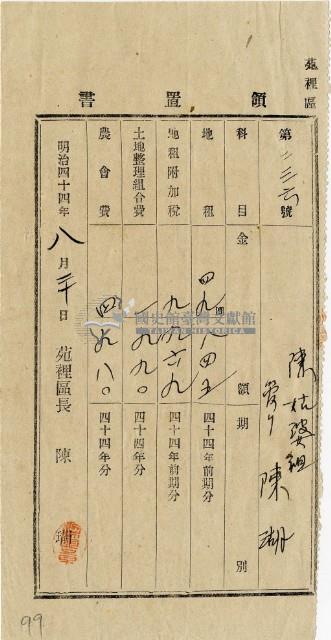 苑裡區
領置書
第二三六號
陳姑婆祖
管理 陳瑚
科目 金額 期別
地租 四九圓八四五 四十四年前期分
地租附加稅 九九六九 四十四年前期分
土地整理組合費 九九〇 四十四年分
農會費 四九八〇 四十四年分
明治四十四年八月二十日 苑裡區長 陳瑚
國史館臺灣文獻館
TAIWAN HISTORICA
99